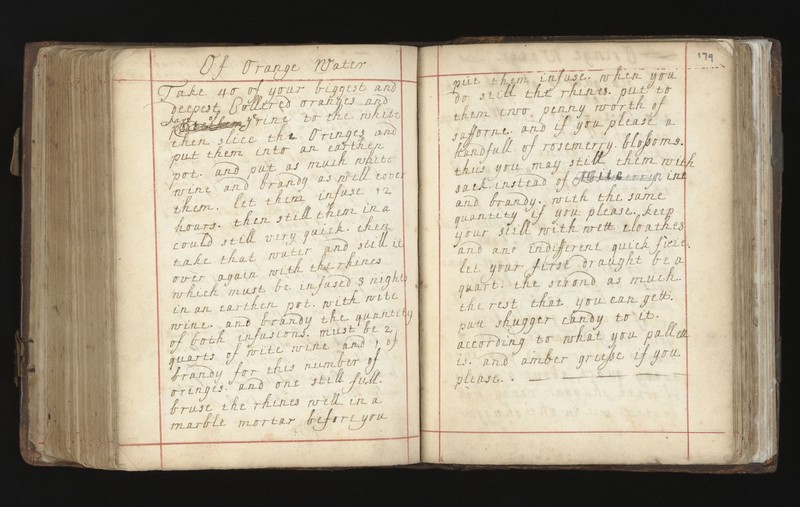 Of Orange Water
Take 40 of your biggest and
deepest Collered oranges and
rine to the white
then slice the Oringes and
put them into an earthen
pot. and put as much white
wine and brandy as will cover
them. let them infuse 12
hours. then still them in a
could still very quick. then
take that water and still it
over again with the rhines
which must be infused 3 nights
in an earthen pot. with wite
wine. and brandy the quantity
of both infusions. must be 2
quarts of wite wine and 1 of
brandy for this number of
oringes. and one still full.
bruse the rhines well in a
marble mortar before you
179
put them infuse. when you
do still the rhines. put to
them two penny worth of
safforne. and if you please a
handfull of rosemerry. blossoms.
thus you may still them with
sack instead of wine
and brandy. with the same
quantity if you please. keep
your still with wett cloathes
and ane indifferent quick fiere.
let your first draught be a
quart. the second as much.
the rest that you can gett.
putt shugger candy to it.
according to what you pallett
is. and amber greese if you
please. .